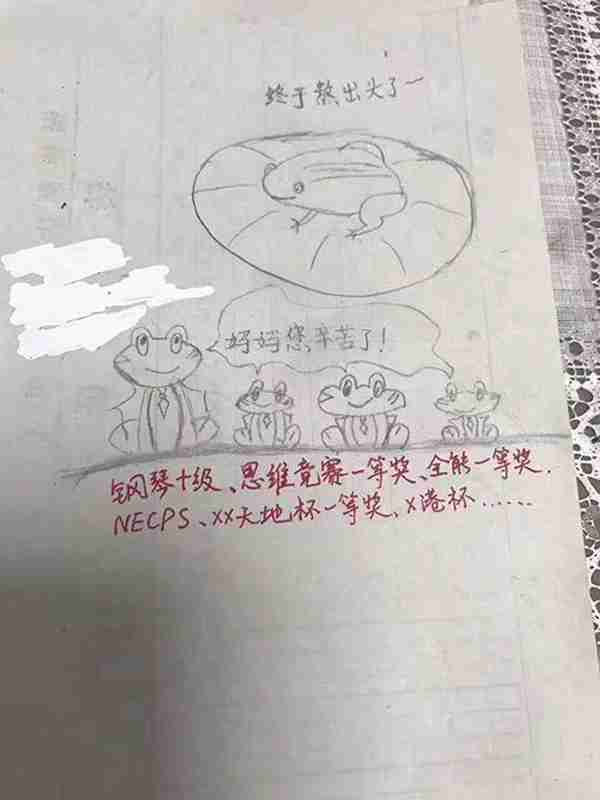 终于熬出头了~
妈妈您辛苦了!
钢琴十级、思维竞赛一等奖、全能一等奖.
NECPS、XX天地杯一等奖、X港杯......